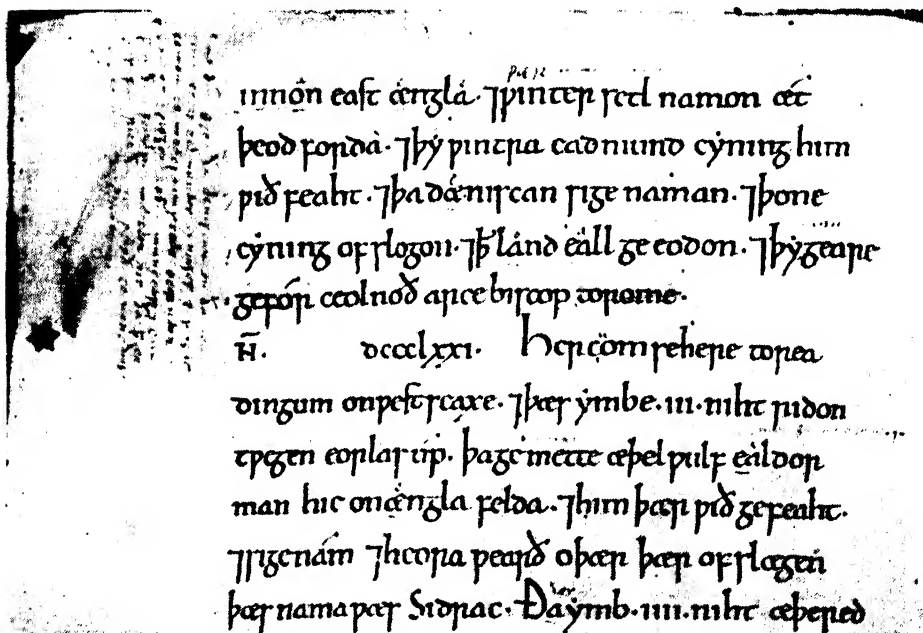 innon east ængla. ⁊ƿinter setl namon æt
þeod forda. ⁊þẏ ƿintra eadmund cẏning him
ƿið feaht. ⁊þa dæniscan sige naman. ⁊þone
cẏning ofslogon. ⁊ꝥ land eall ge eodon. ⁊þẏ geare
gefór ceolnoð arce biscop to rome.
N̄. dccclxxi. Her cóm se here to rea
dingum on ƿestseaxe. ⁊þæs ẏmbe .iii. niht ridon
tƿegen eorlas úp. þa gemette æþelƿulf ealdor
man hie on ængla felda. ⁊him þær ƿið gefeaht.
⁊sige nám ⁊heora ƿearð oþær þær ofslægen
þæs nama ƿæs Sidrac. Ða ẏmb .iiii. niht æþered